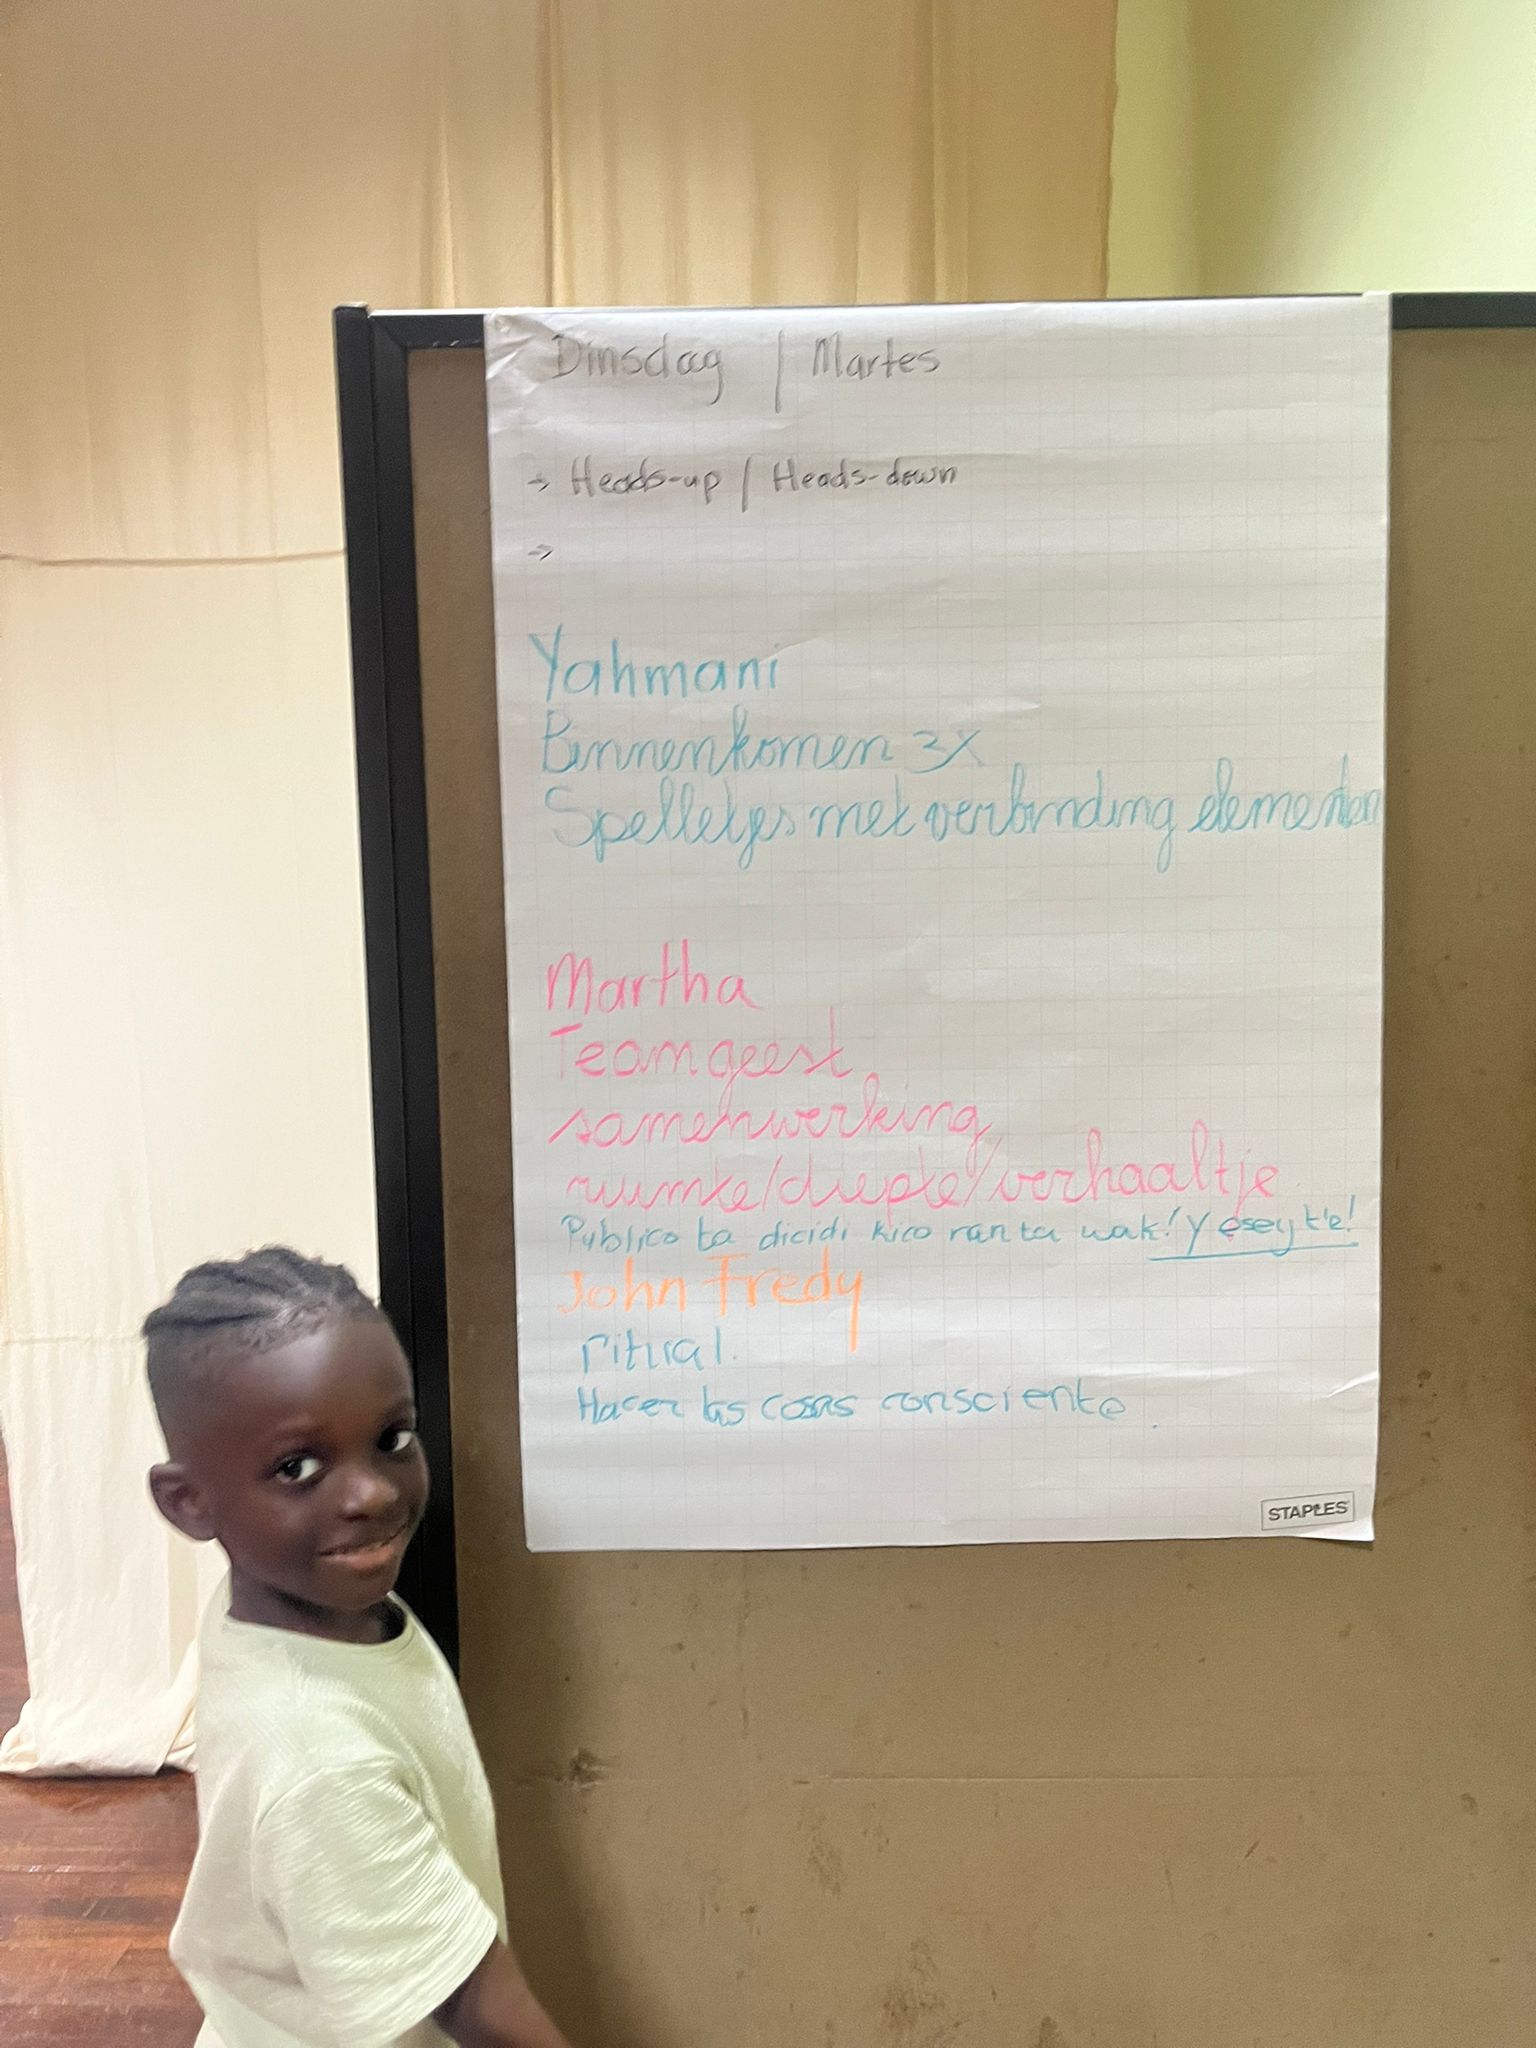 Dinsdag / Martes
→ Heads-up / Heads-down
→
Yahmani
Binnenkomen 3x
Spelletjes met verbinding elementen
Martha
Teamgeest
samenwerking
ruimte/diepte/verhaaltje
Publico ta dicidi kico ran ta wak! Y esey t'e!
John Fredy
ritual.
Hacer las cosas consciente.
STAPLES